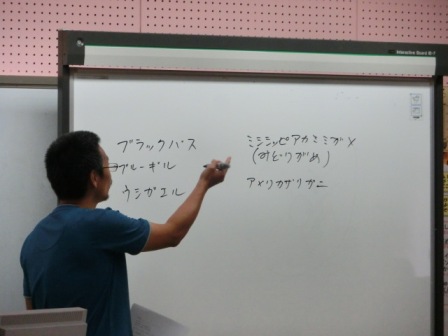 ブラックバス
ブルーギル
ウシガエル
ミシシッピアカミミガメ
(みどりがめ)
アメリカザリガニ
Interactive Board